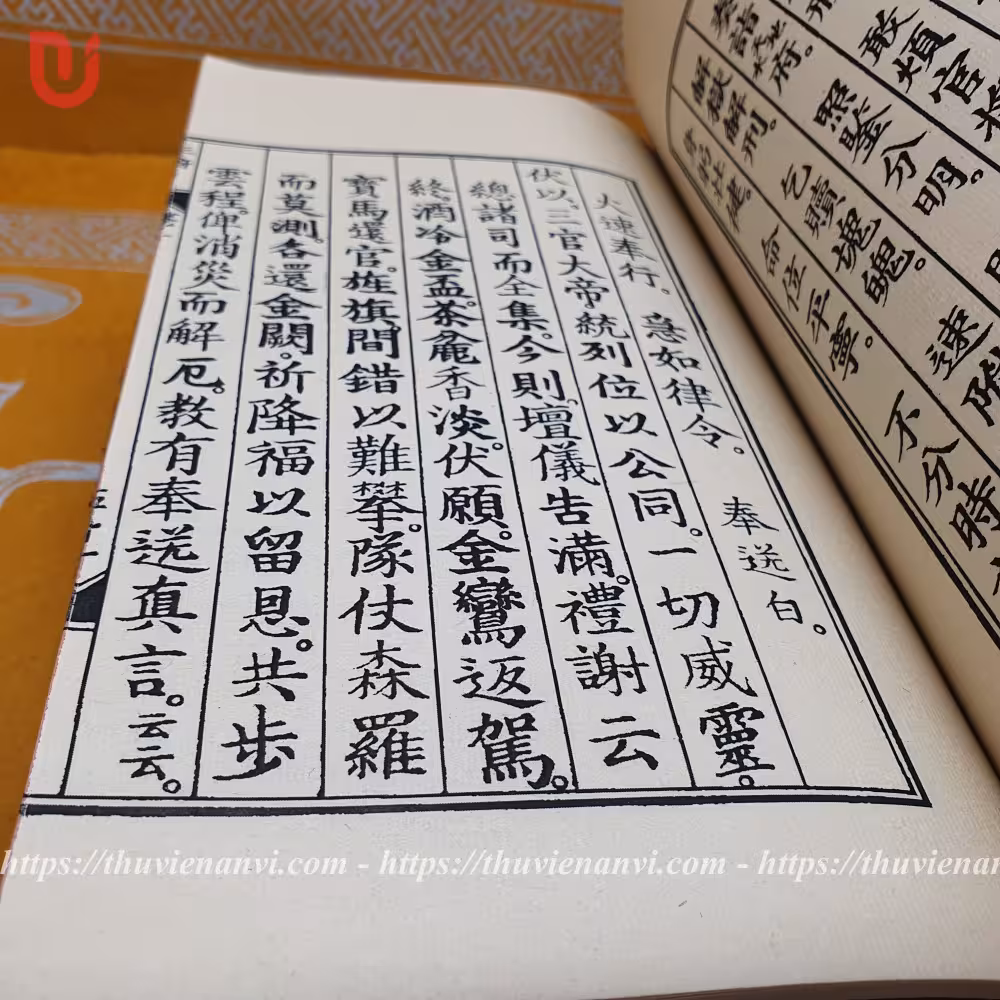 敢煩官將
府。照鑒分明。
解獄解刑。乞贖塊魄。速附
壯健。命位平寧。不分時
火速奉行。急如律令。奉送白。
伏以。三官大帝統列位以公同。一切威靈。
總諸司而全集。今則。壇儀告滿。禮謝云
終。酒冷金盃。茶龕香淡。伏願。金鸞返駕。
寶馬還官。旌旗間錯以難攀。隊仗森羅
而莫測。各還金闕。祈降福以留恩。共步
雲程。俾消災而解厄。教有奉送真言。云云。
https://thuvienanvi.com - https://thuvienanvi.com - https://thuvienanvi